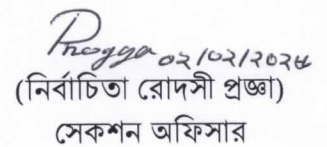 Progga ০২/০২/২০২৪
(নির্বাচিতা রোদসী প্রজ্ঞা)
সেকশন অফিসার